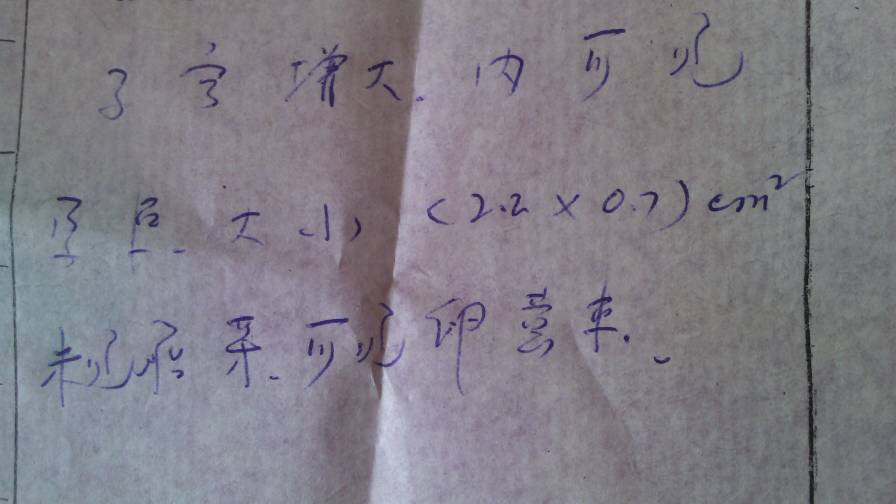 子宫增大.内可见
孕包.大小(2.2×0.7)cm²
未见胎牙.可见卵黄束.